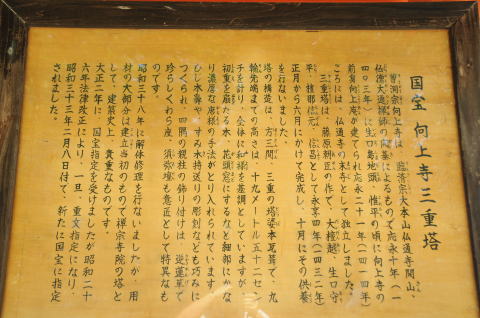 国宝 向上寺三重塔
曹洞宗向上寺は、臨済宗大本山仏通寺開山、
仏徳大通禅師の開基によるもので応永十年(一
四〇三年)に生口島地頭、惟平の頃に向上寺の
前身向上庵が建てられ応永二十一年(一四一四年)
ころには、仏通寺の末寺として独立しました。
三重塔は、藤原朝正の作で、大檀越、生口守
平、信昌として永享四年(一四三二年)
正月から六月にかけて完成し、十月にその供養
を行ないました。
塔の構造は、方三間、三重の塔婆本瓦葺で、九
輪先端までの高さは、十九メートル五十二セン
チを計り、全体に和様を基調としていますが、
初重を扇たる木、花頭窓にするなど細部にかな
り濃厚な唐様の手法がとり入れられています。
ひじ木鼻やそすみ木持送りの彫刻なども巧みに
つくられ、四隅の親柱の飾り付けは、逆蓮華で
珍らしく、わら座、須弥壇も意匠として特異なも
のです。
昭和三十八年に解体修理を行ないましたが、用
材の大部分は建立当初のもので禅宗寺院の塔と
して、建築史上、貴重なものです。
大正二年に、国宝指定を受けましたが昭和二十
六年法律改正により、一旦、重文指定になり、
昭和三十三年二月八日付で、新たに国宝に指定
されました。